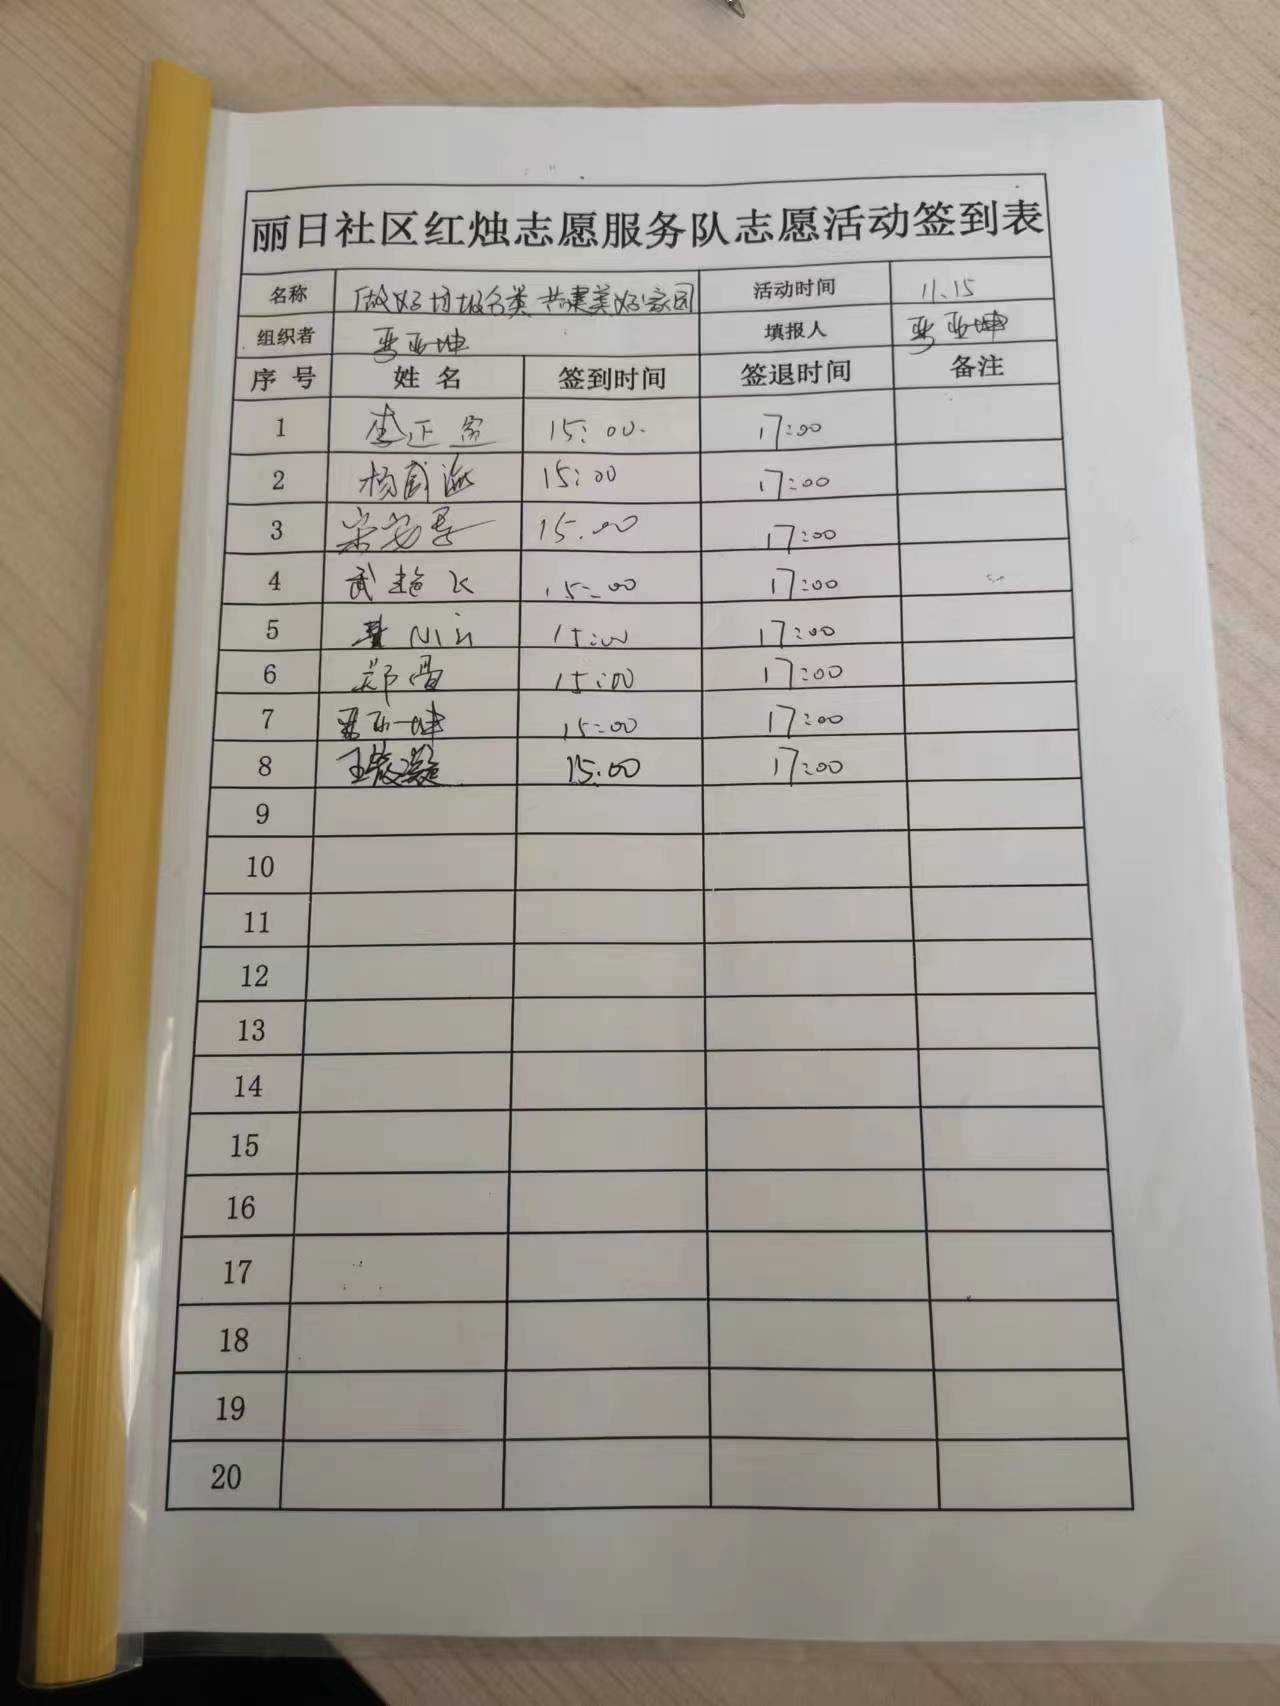 丽日社区红烛志愿服务队志愿活动签到表
名称 做好垃圾分类 共建美好家园 活动时间 11.15
组织者 亚坤 填报人 亚坤
序号 姓名 签到时间 签退时间 备注
1 李正 15:00. 17:00
2 杨 15:00 17:00
3 宋 15.00 17:00
4 武 15:00 17:00
5 15:00 17:00
6 郑 15:00 17:00
7 坤 15:00 17:00
8 王 15:00 17:00
9
10
11
12
13
14
15
16
17
18
19
20